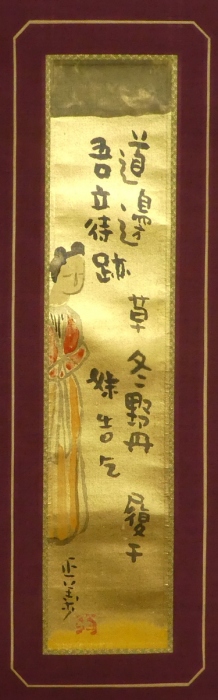 道邊 草 冬野丹 履干
吾立待跡 妹告乞